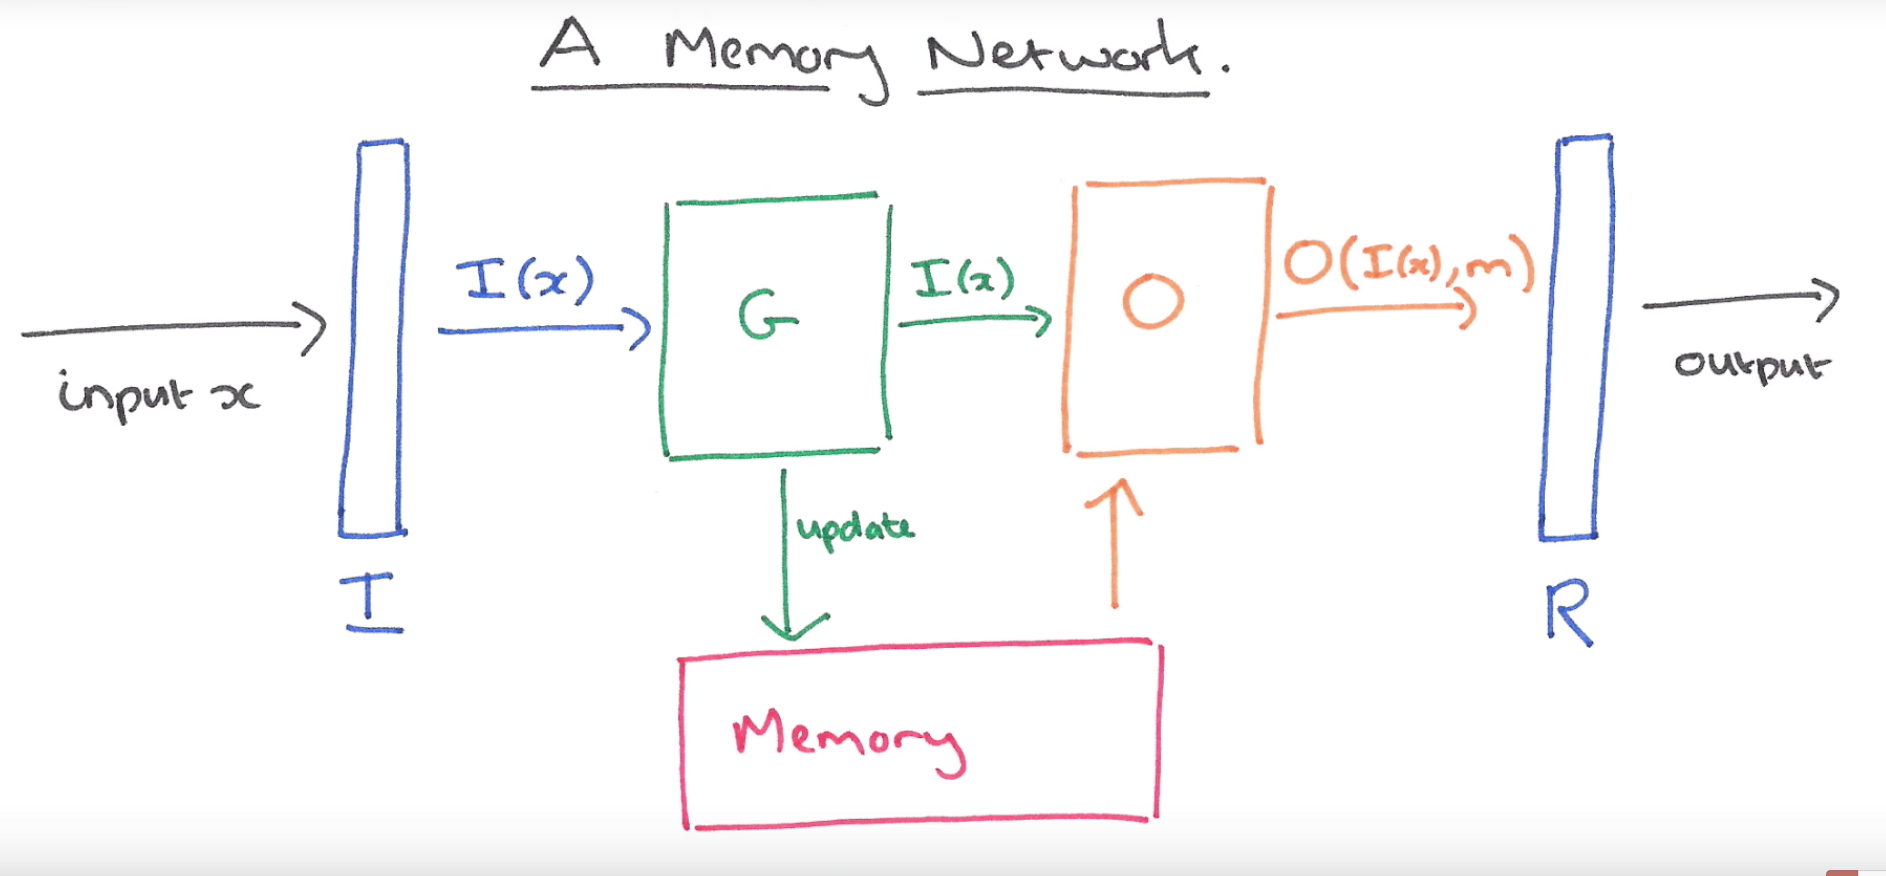 A Memory Network.
input x
I
I(x)
G
I(x)
O
O(I(x), m)
R
output
update
Memory